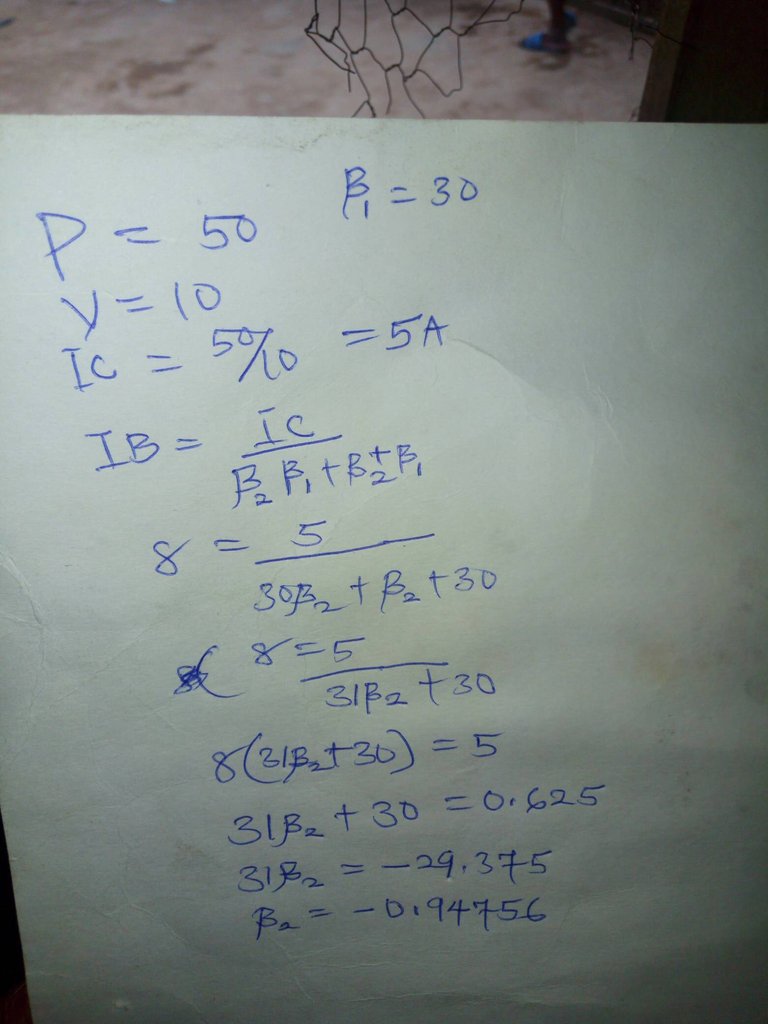 β₁ = 30
P = 50
V = 10
IC = 50/10 = 5A
IB = IC / β₂ β₁ + β₂ + β₁
8 = 5 / 30β₂ + β₂ + 30
8 = 5 / 31β₂ + 30
8(31β₂ + 30) = 5
31β₂ + 30 = 0.625
31β₂ = -29.375
β₂ = -0.94756